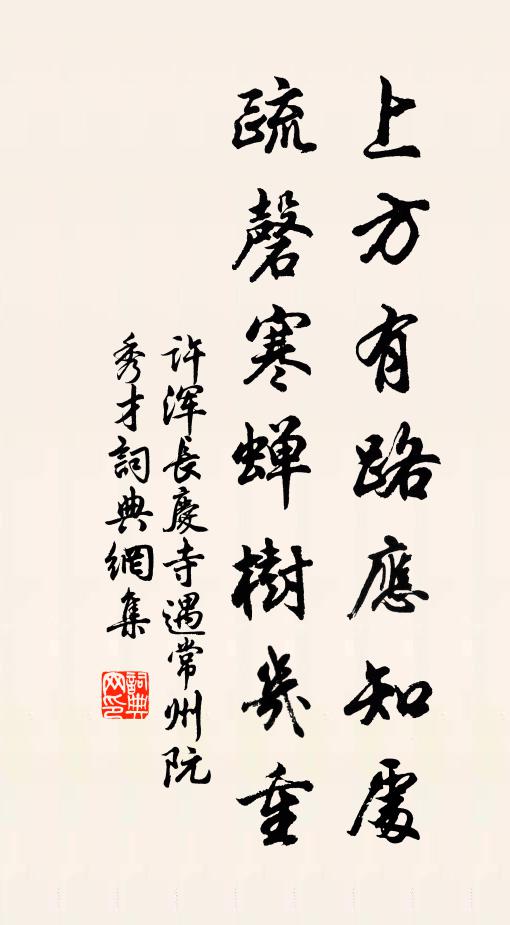 上方有路應知處
疏磬寒蟬樹幾重
許渾長慶寺遇常州阮
秀才詞典網集
詞典網印